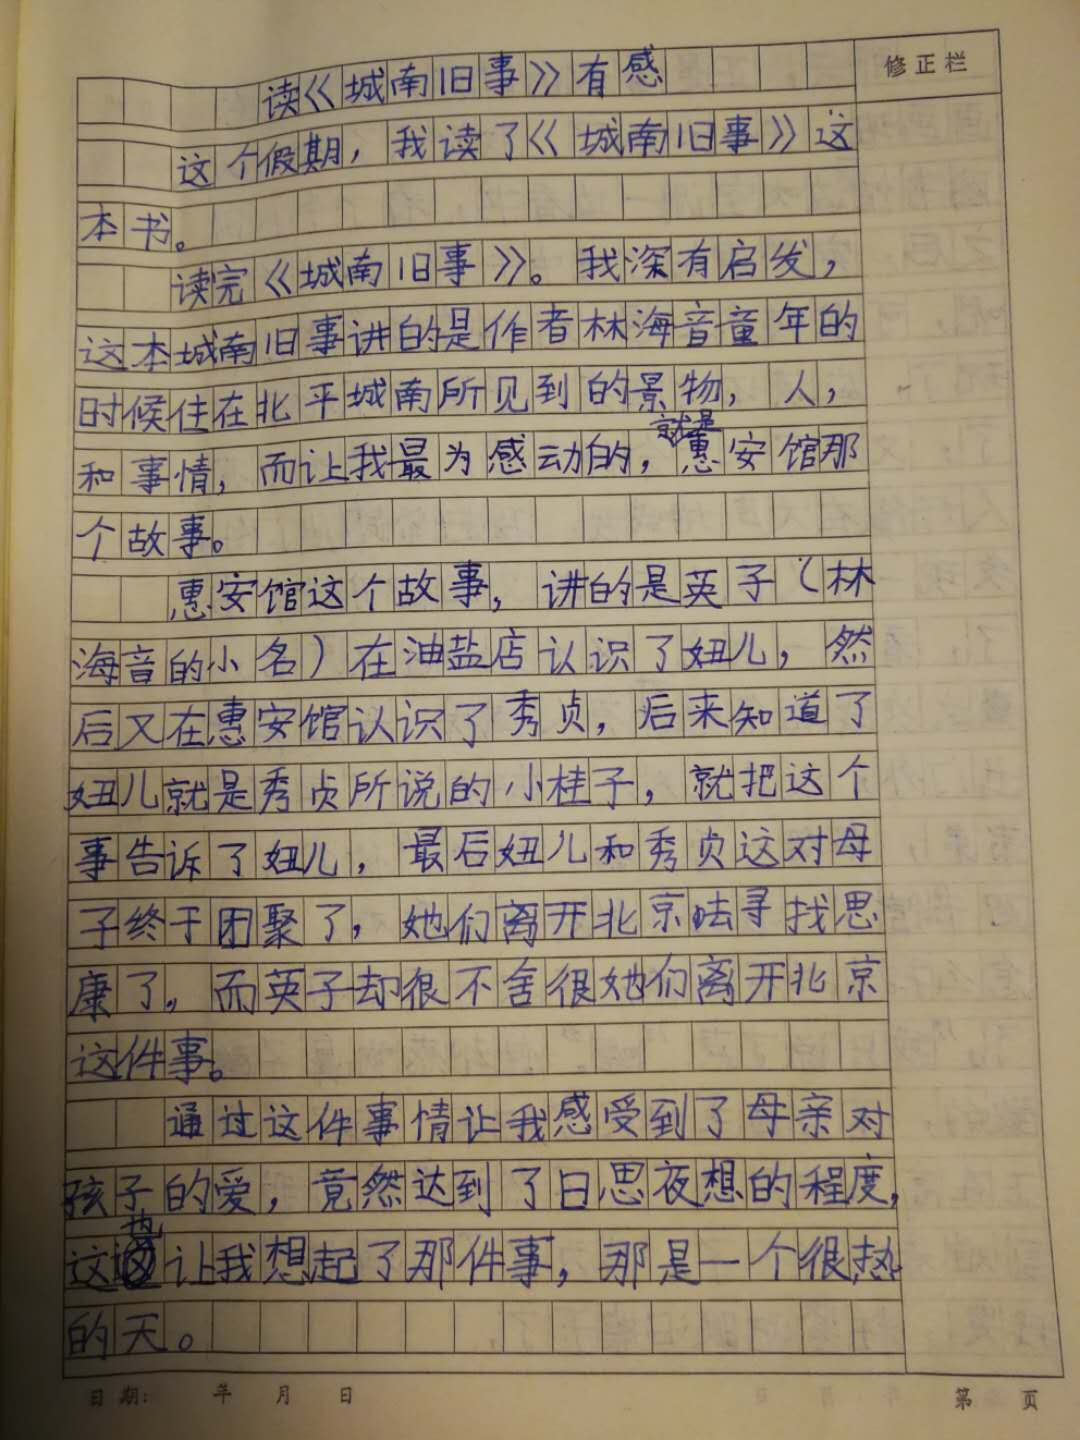 修正栏
读《城南旧事》有感
这个假期，我读了《城南旧事》这
本书。
读完《城南旧事》。我深有启发，
这本城南旧事讲的是作者林海音童年的
时候住在北平城南所见到的景物，人，
和事情，而让我最为感动的，就是惠安馆那
个故事。
惠安馆这个故事，讲的是英子（林
海音的小名）在油盐店认识了妞儿，然
后又在惠安馆认识了秀贞，后来知道了
妞儿就是秀贞所说的小桂子，就把这个
事告诉了妞儿，最后妞儿和秀贞这对母
子终于团聚了，她们离开北京去寻找思
康了，而英子却很不舍很她们离开北京
这件事。
通过这件事情让我感受到了母亲对
孩子的爱，竟然达到了日思夜想的程度，
这也让我想起了那件事，那是一个很热
的天。
日期： 年 月 日 第 页